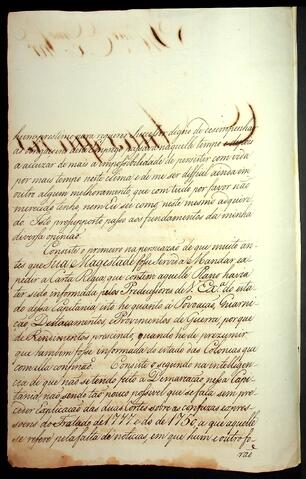 bem presteme para o querer
a accuzar de mais a impossibilidade de persistir com vida
por mais tempo neste clima, e de me ser difficil ainda em
outro algum melhoramento, que com tudo por favor não
merecido tenho, nem Eu sei como neste mesmo adqueri-
do. Isto presupposto passo aos fundamentos da minha
diversa opinião.
Consiste o primeiro na persuazão de que muito an-
tes que Sua Magestade fosse Servida Mandar ex-
pedir a Carta Regia que contem aquelle Plano havia
ter sido informada pelos Predecessores de V. Exª. do esta-
do dessa Capitania, isto he quanto a Povoação, Guarni-
ção Destacamentos, Provimentos de Guerra, porque
de Rendimentos prescindo, quando he de prezumir
que tambem fosse informada do estado das Colonias que
com ella confinão. Consiste o segundo na intelligen-
cia de que não se tendo feito a Demarcação nessa Capi-
tania, não sendo tão pouco possivel que se faça sem pre-
ceder Explicação das duas Cortes sobre as confuzas expres-
soens do Tratado de 1777 e do de 1750, a que aquelle
se refere pela falta de noticias em que hum e outro fo-
rão